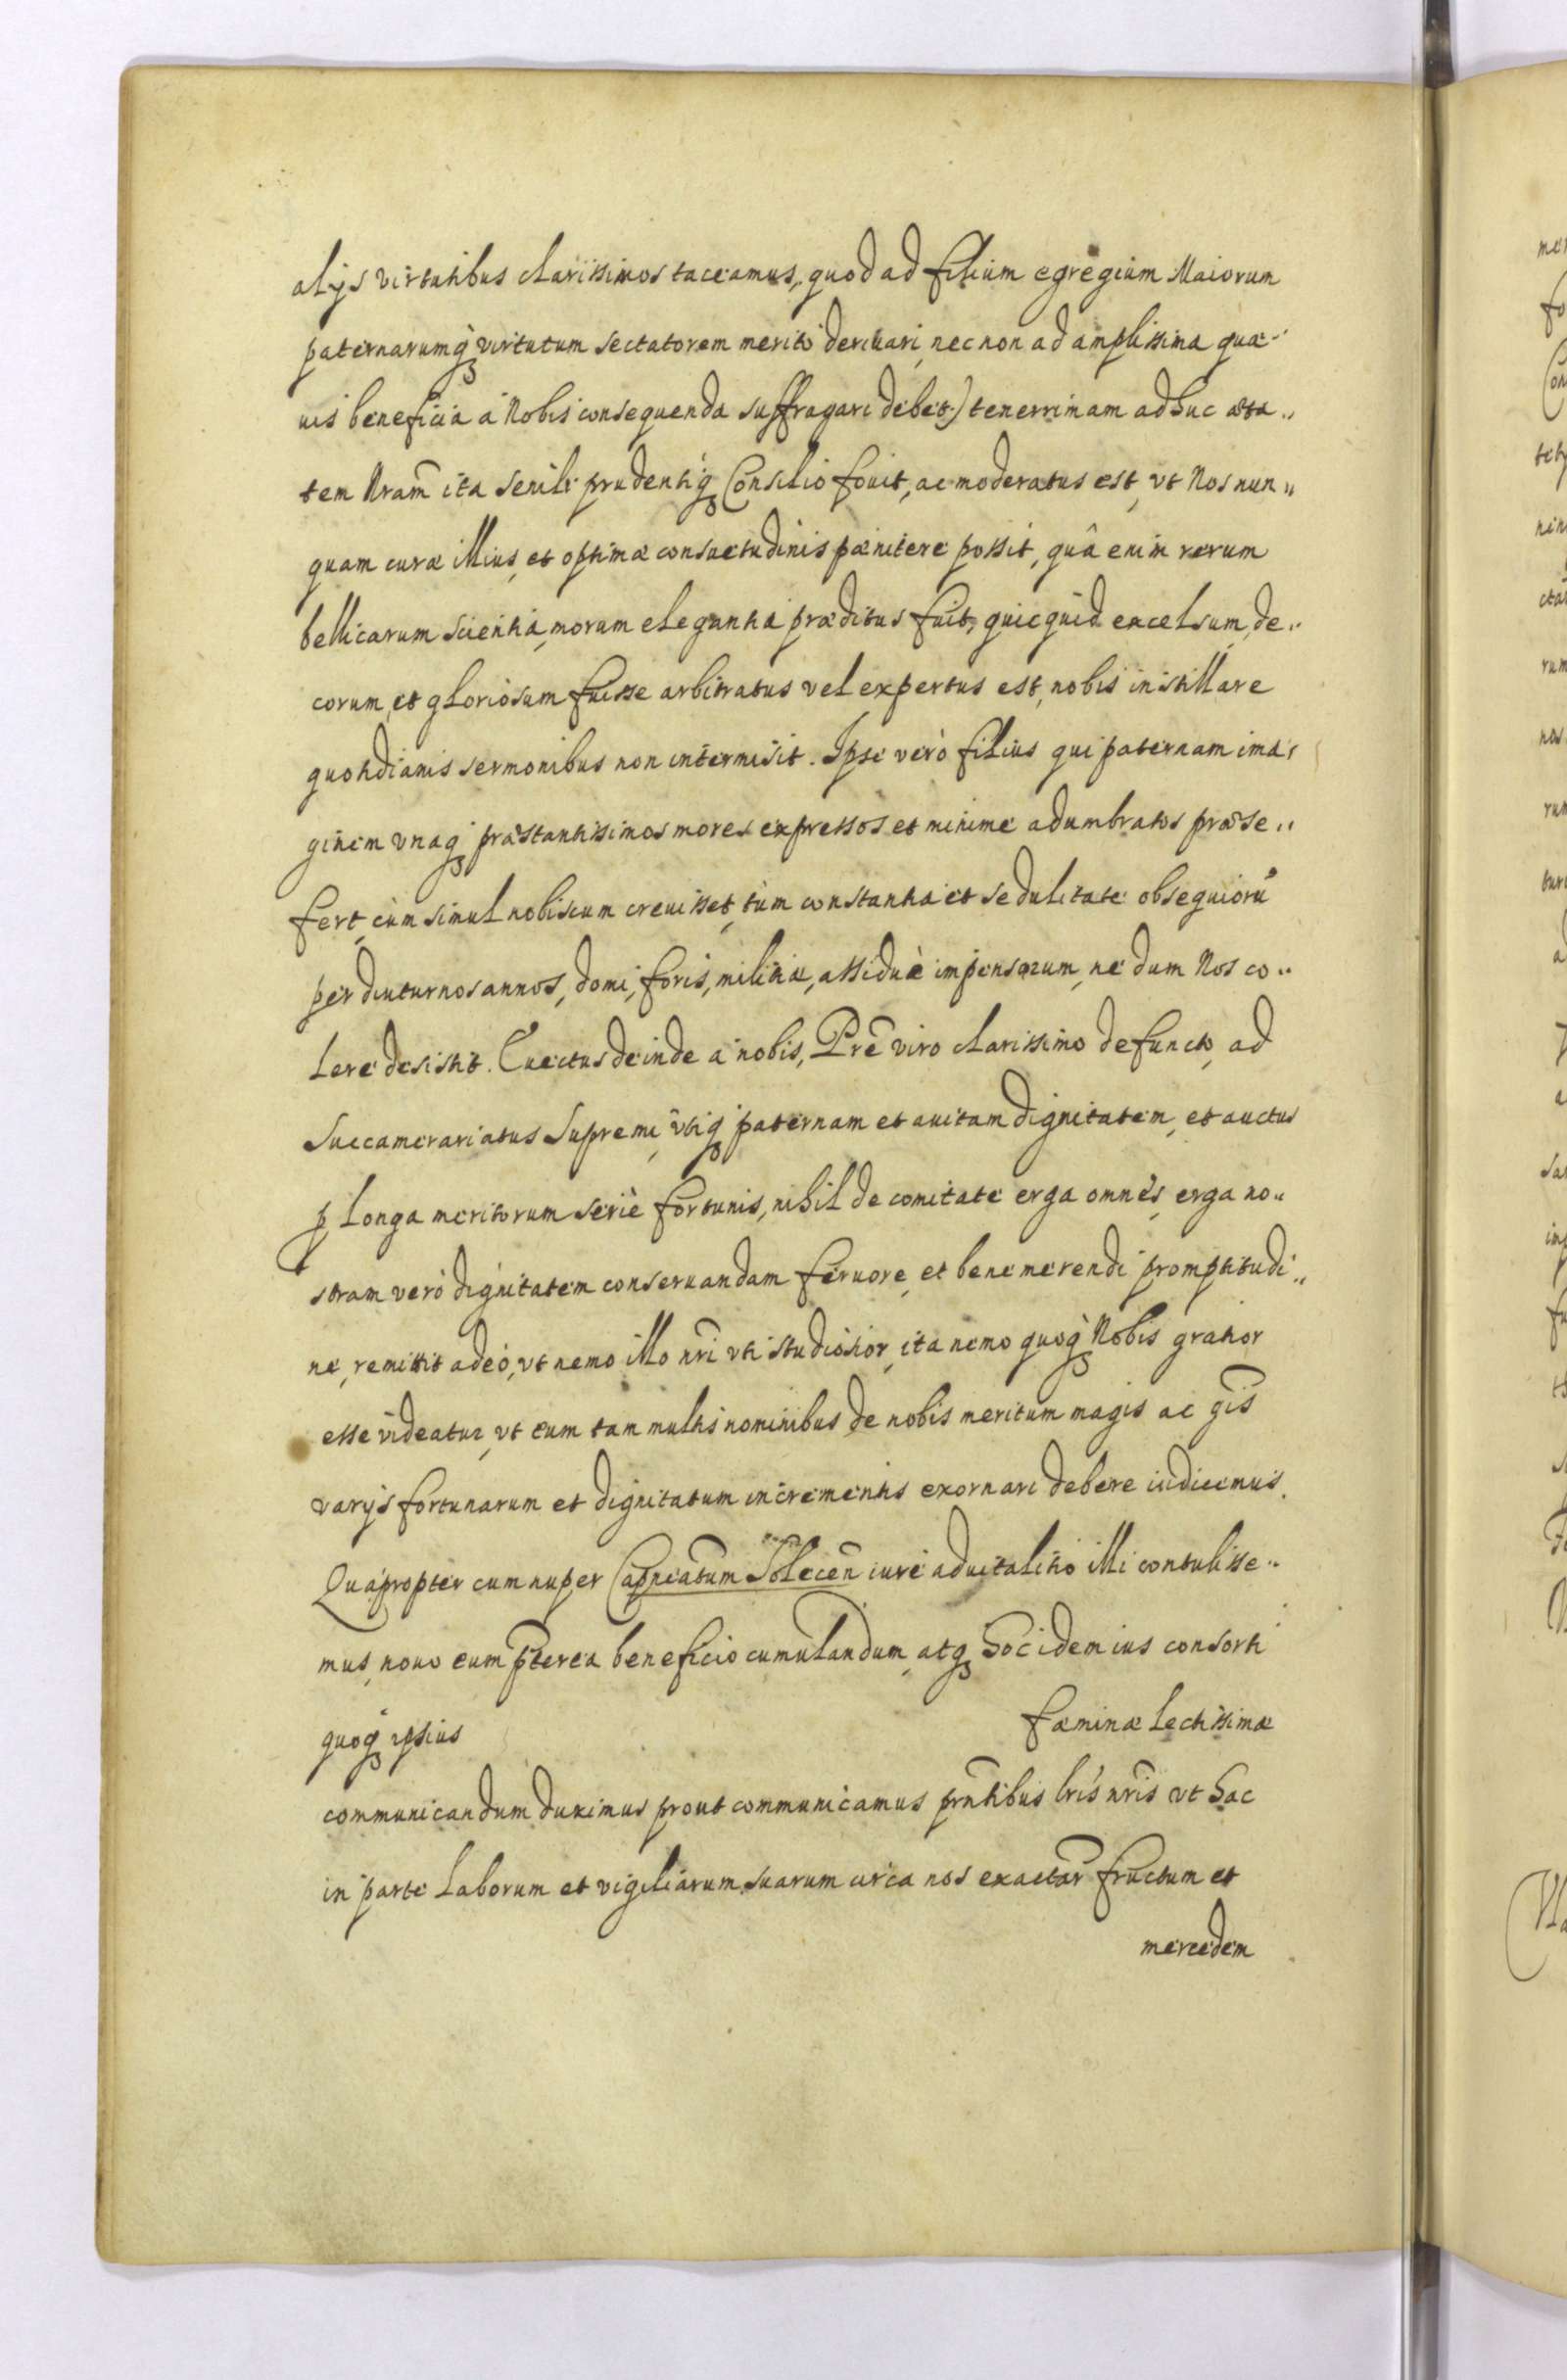 alijs virtutibus clarissimos taceamus, quod ad filium egregium Maiorum
paternarumq; virtutum sectatorem merito deriuari, nec non ad amplissima quæ-
uis beneficia à Nobis consequenda suffragari debet) tenerrimam adhuc æta„
tem Nram̃ ita senili prudentiq; Consilio fouit, ac moderatus est, vt Nos nun„
quam curæ illius, et optimæ consuetudinis pænitere possit, quâ enim rerum
bellicarum scientia, morum elegantia præditus fuit, quicquid excelsum, de„
corum, et gloriosum fuisse arbitratus vel expertus est, nobis instillare
quotidianis sermonibus non intermisit. Ipse verò filius qui paternam ima„
ginem vnaq; præstantissimos mores expressos et minime adumbratos præse„
fert, cùm simul nobiscum creuisset, tùm constantia et sedulitate obsequiorũ
per diuturnos annos, domi, foris, militiæ, assiduè impensorum, ne dum Nos co„
lere desistit. Euectus deinde à nobis, Prẽ viro clarissimo defuncto, ad
Succamerariatus Supremi, vtiq; paternam et auitam dignitatem, et auctus
p longa meritorum serie fortunis, nihil de comitate erga omnes, erga no„
stram verò dignitatem conseruandam feruore, et benemerendi promptitudi„
ne, remittit adeò, vt nemo illo nr̃i vti studiosior, ita nemo quoq; Nobis gratior
esse videatur, vt eum tam multis nominibus de nobis meritum magis ac gis̃
varijs fortunarum et dignitatum incrementis exornari debere iudicemus.
Quapropter cum nuper Capneatum Solecen̄ iure aduitalitio illi contulisse„
mus, nouo eum p̃terea beneficio cumulandum, atq; hoc idem ius consorti
quoq; ipsius fæminæ lectissimæ
communicandum duximus prout communicamus prñtibus lr̃is nr̃is vt hac
in parte laborum et vigiliarum suarum circa nos exactar̃ fructum et
mercedem